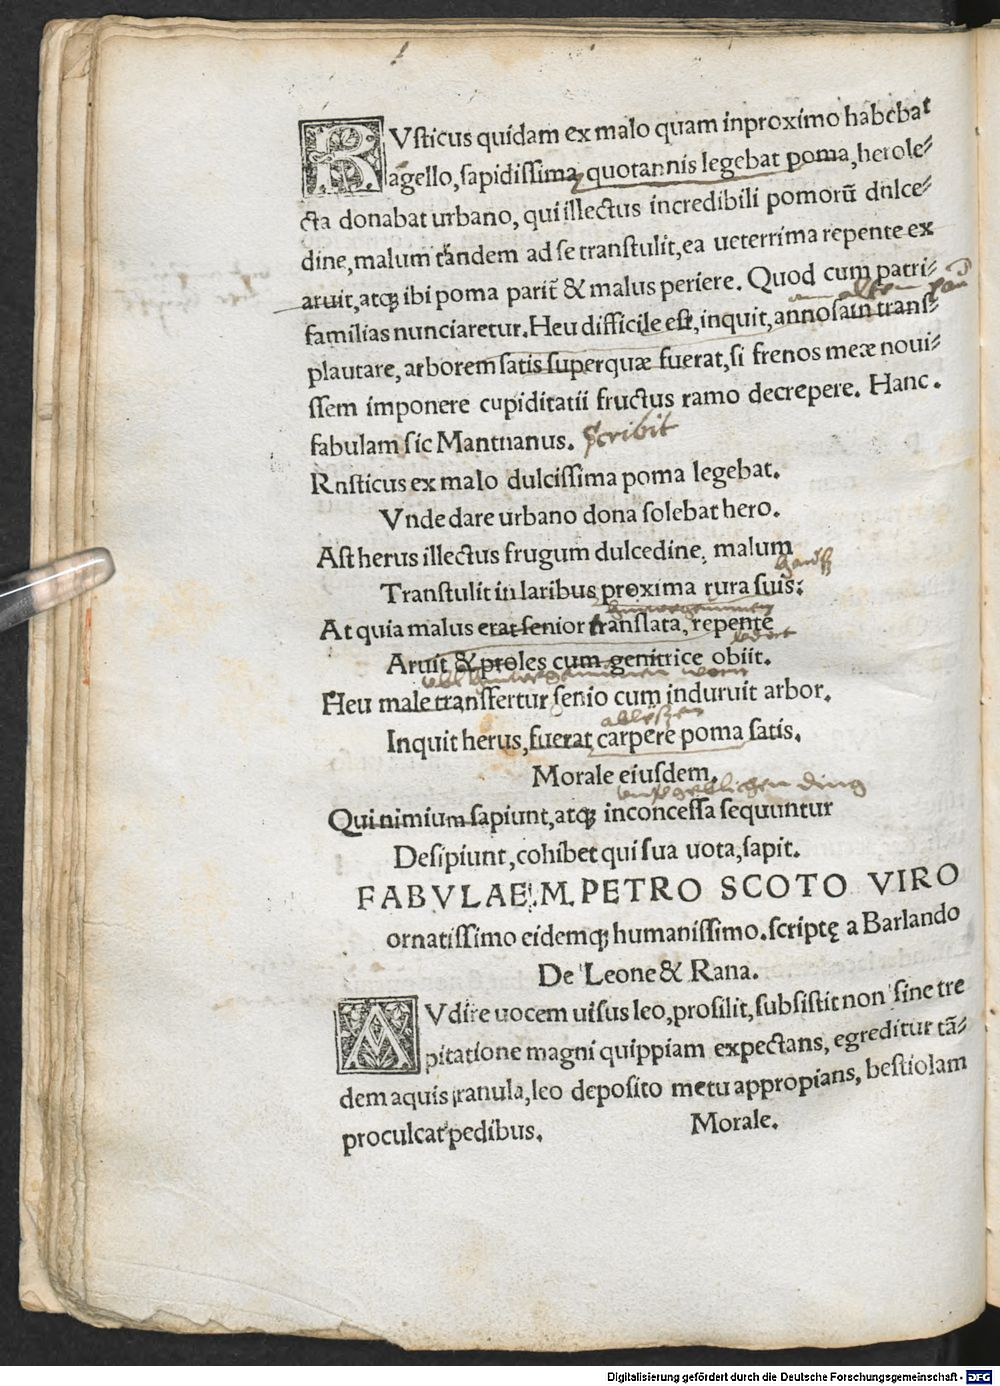 RVſticus quidam ex malo quam inproximo habebat
agello, ſapidiſſima, quotannis legebat poma, herole⸗
cta donabat urbano, qui illectus incredibili pomorū dnlce⸗
dine, malum tãndem ad ſe tranſtulit, ea ueterrima repente ex
aruit, atqꝫ ibi poma parit̃ & malus periere. Quod cum patri⸗
familias nunciaretur. Heu difficile eſt, inquit, annoſam tranſ⸗
plautare, arborem ſatis ſuperquæ fuerat, ſi frenos meæ noui⸗
ſſem imponere cupiditatii fructus ramo decrepere. Hanc.
fabulam ſic Mantnanus. ſcribit
Rnſticus ex malo dulciſſima poma legebat.
Vnde dare urbano dona ſolebat hero.
Aſt herus illectus frugum dulcedine, malum
Tranſtulit in laribus proxima rura ſuis:
At quia malus erat ſenior tranſlata, repente
Aruit & proles cum genitrice obiit.
Heu male tranſfertur ſenio cum induruit arbor.
Inquit herus, fuerat carpere poma ſatis.
Morale eiuſdem.
ding
Qui nimium ſapiunt, atqꝫ inconceſſa ſequuntur
Deſipiunt, cohibet qui ſua uota, ſapit.
FABVLAE. M. PETRO SCOTO VIRO
ornatiſſimo eidemqꝫ humaniſſimo. ſcriptę a Barlando
De Leone & Rana.
AVdire uocem uiſus leo, proſilit, ſubſiſtit non ſine tre
pitatione magni quippiam expectans, egreditur tã⸗
dem aquis ranula, leo depoſito metu appropians, beſtiolam
proculcat pedibus. Morale.
Digitalisierung gefördert durch die Deutsche Forschungsgemeinschaft - DFG